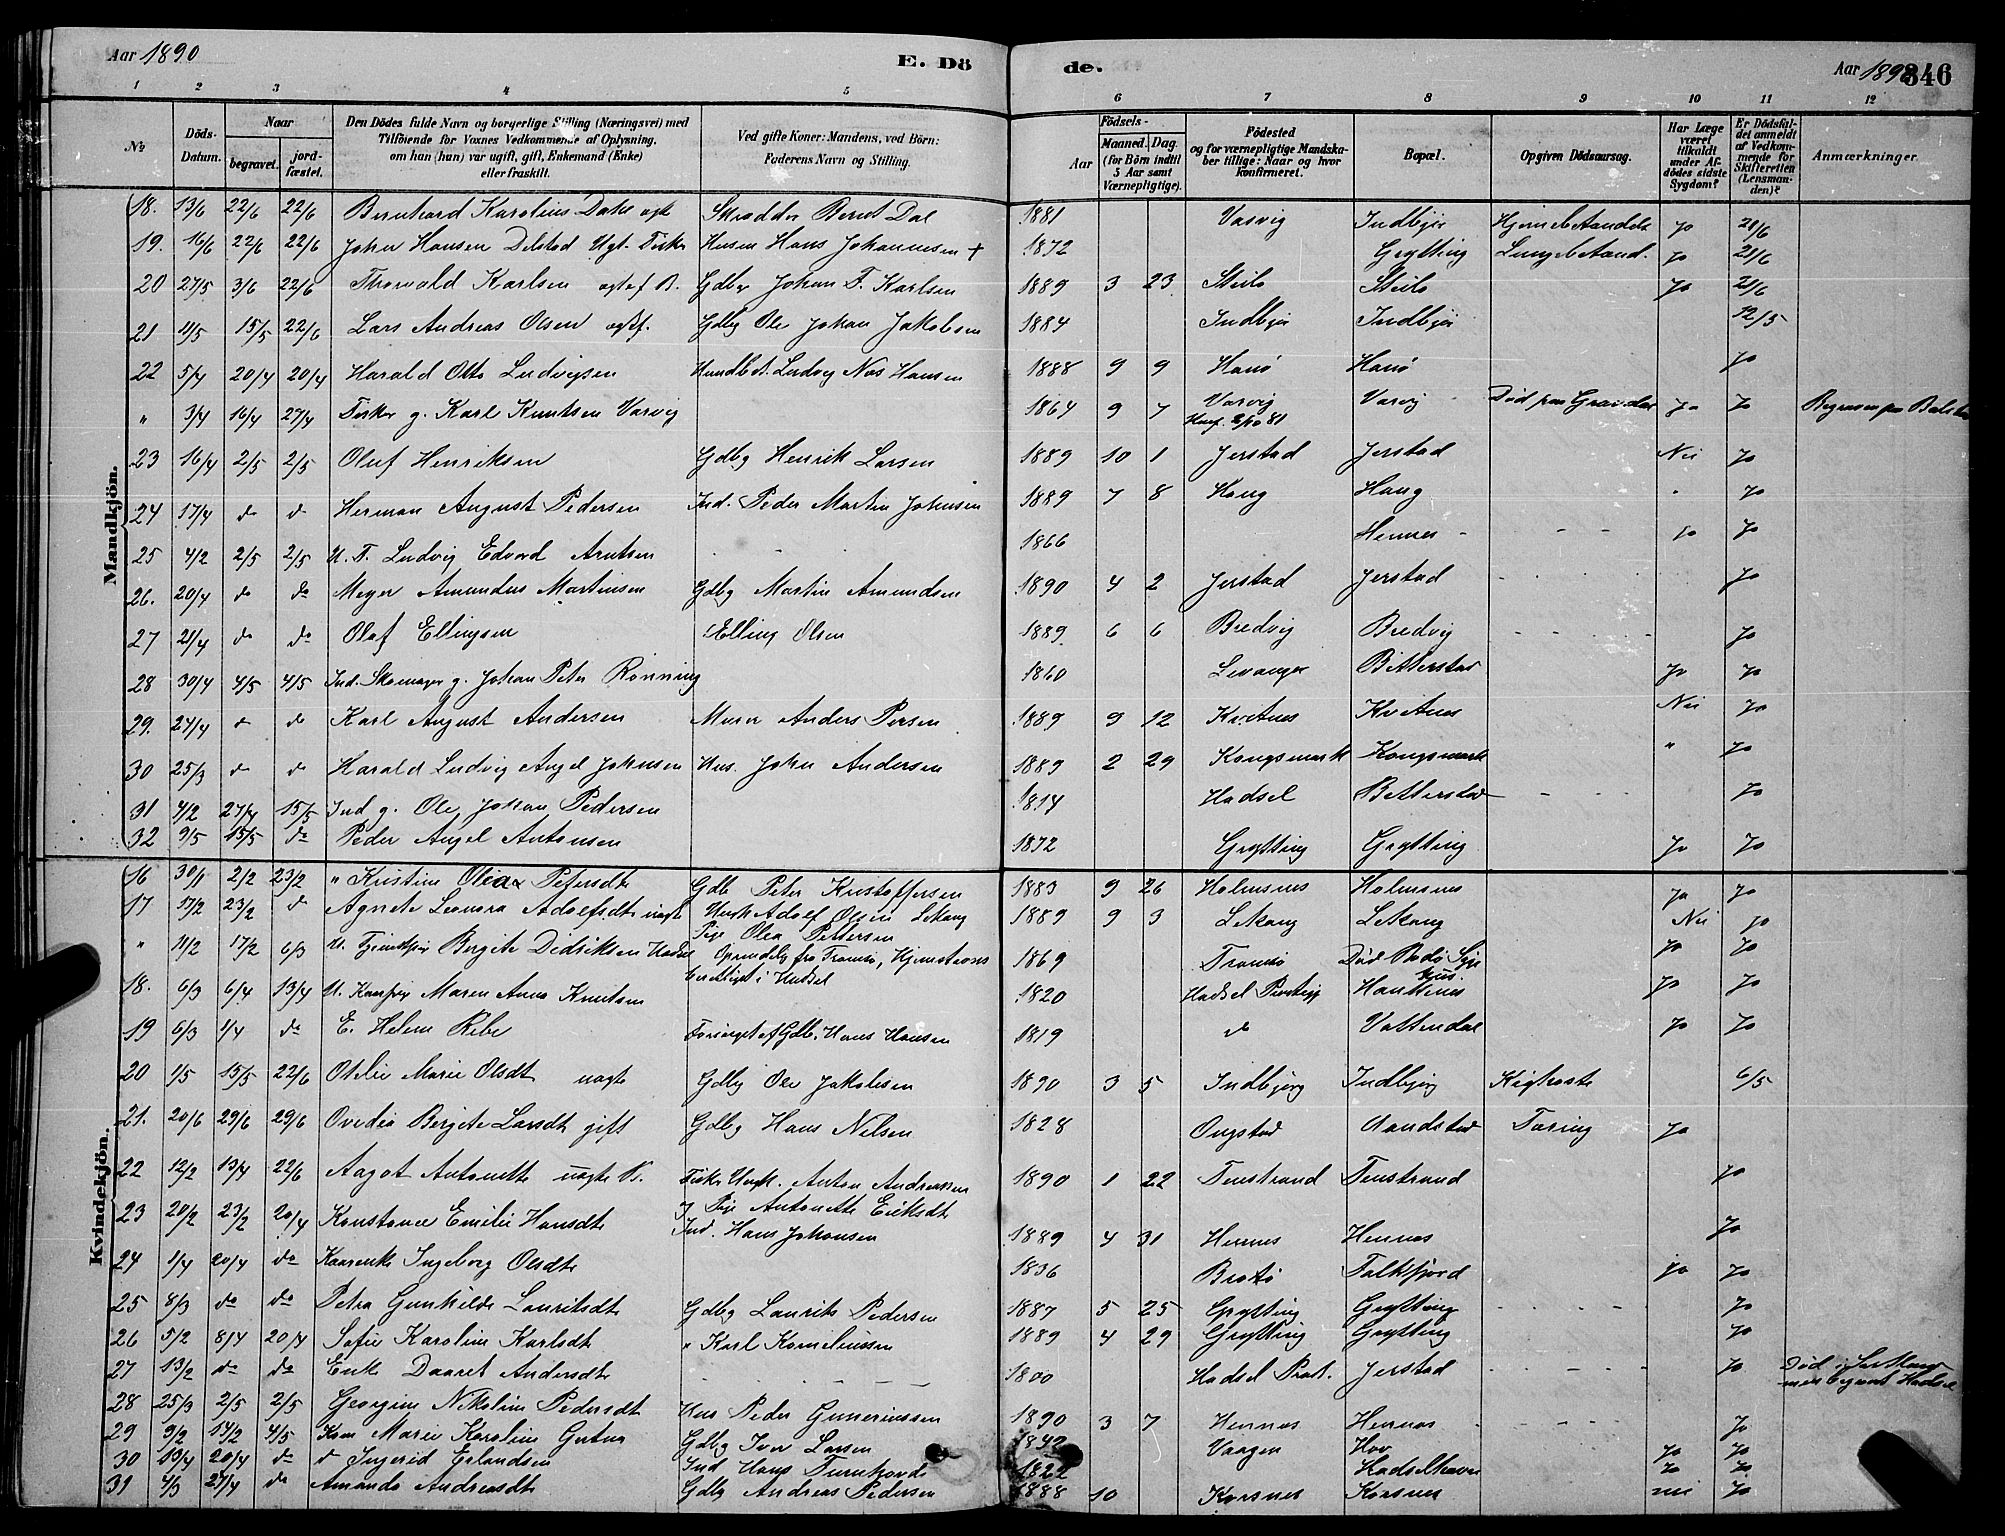 Aar 1890 E. Dö de. Aar 1890 346
1 2 3 4 5 6 7 8 9 10 11 12
No Döds-Datum. Naar begravet. jord-fæstet. Den Dödes fulde Navn og borgerlige Stilling (Næringsvei) med Tilföiende for Voxnes Vedkommende af Oplysning, om han (hun) var ugift, gift, Enkemand (Enke) eller fraskilt. Ved gifte Koner: Mandens, ved Börn: Faderens Navn og Stilling. Födsels- Aar Maaned. Dag. (for Börn indtil 5 Aar samt Værnepligtige). Födested og for værnepligtige Mandskaber tillige: Naar og hvor konfirmeret. Bopæl. Opgiven Dödsaarsag. Har Læge været tilkaldt under Afdödes sidste Sygdom? Er Dödsfaldet anmeldt af Vedkommende for Skifteretten (Lensmanden)? Anmærkninger.
Mandkjön.
18. 13/6 22/6 22/6 Bernhard Karolius Dahl Skrædder Bernt Dal 1881 Varvig Indbjör Jo 21/6
19. 16/6 22/6 22/6 Johan Hansen Ugt. Fisker Husm Hans Johannesen + 1872 Grytting Lungebetænd. Jo 21/6
20 27/5 3/6 22/6 Thorvald Karlsen Gdbr Johan F. Karlsen 1889 3 23 Steilo Steilo Jo 21/6
21 11/5 15/5 22/6 Lars Andreas Olsen Gdbg Ole Johan Jakobsen 1884 Indbjör Indbjör 12/5
22 5/4 20/4 20/4 Harald Otto Ludvigsen Ludvig Hansen 1888 9 9 Hanö Hanö Jo
" 3/4 16/4 27/4 Fisker g. Karl Knutsen Varvig 1864 9 7 Varvig Konf. 2/10 81 Varvig Död paa Gravdal Jo Jo Begraven paa
23 16/4 2/5 2/5 Oluf Henriksen Gdbg Henrik Larsen 1889 10 1 Jerstad Jerstad Nei Jo
24 17/4 do do Herman August Pedersen Ind. Peder Martin Johnsen 1889 7 8 Haug Haug " Jo
25 4/2 2/5 2/5 U. F. Ludvig Edvard Arntsen 1866 Hennes Jo Jo
26. 20/4 do do Meyer Amundus Martinsen Gdbg Martin Amundsen 1890 4 2 Jerstad Jerstad Jo
27 21/4 do do Olaf Ellingsen Elling Olsen 1889 6 6 Bredvig Bredvig Jo
28 30/4 4/5 4/5 Ind. Skomager g. Johan Peter Rönning 1860 Levanger Bitterstad Jo Jo
29. 24/4 do do Karl August Andersen Murer Anders Persen 1889 9 12 Kvitnes Kvitnes Nei Jo
30 25/3 do do Harald Ludvig Angel Johnsen Hus. John Andersen 1889 2 29 Kongsmark Kongsmark " Jo
31 4/2 27/4 15/5 Ind g. Ole Johan Pedersen 1814 Hadsel Bitterstad Jo
32 9/5 15/5 do Peder Angel Antonsen 1872 Grytting Grytting Jo Jo
Kvindekjön.
16 30/1 2/2 23/2 " Kristine Olea Petersdt Gdb Peter Kristoffersen 1883 9 26 Holmsnes Holmsnes Jo Jo
17 17/2 23/2 do Agnete Leonora Adolfsdt uægte Adolf Olsen Lekang Pige Olea Pettersen 1889 9 3 Lekang Lekang Nei Jo
" 11/2 17/2 6/3 U. Tjenestpig Bergite Didriksen Hadsel Oprindelig fra Tromsö, Hjemstavns Berettiget i Hadsel 1869 Tromsö Död Bodö Syge hus Jo Jo
18. 6/3 6/4 13/4 U. Maren Anna Knutsen 1820 Hadsel Prestegj Jo Jo
19 6/3 1/4 do E. Helene Rebe Forsörget af Gdb. Hans Hansen 1819 do Vottendal Jo Jo
20 1/5 15/5 22/6 Otelie Marie Olsdt uægte Gdbg Ole Jakobsen 1890 3 5 Indbjörg Indbjörg Kighoste 6/5
21. 20/6 29/6 29/6 Ovedia Bergite Larsdt gift Gdbg Hans Nilsen 1828 Ongstad Sandstad Tæring Jo
22 12/2 13/4 22/6 Aagot Antonette uægte B. Fisker Ungk. Anton Andreassen g Pige Antonette Eriksdt 1890 1 22 Finstrand Finstrand Jo
23 20/2 23/2 20/4 Konstance Emilie Hansdt Ind. Hans Johansen 1889 4 31 Hennes Hennes Jo
24 1/4 20/4 do Ingeborg Olsdt 1836 Brotö Falkfjord Jo Jo
25 8/3 do do Petra Gunhilde Lauritsdt Gdbg Laurits Pedersen 1887 5 25 Grytting Grytting Jo
26 5/2 8/4 20/4 Sofie Karoline Karlsdt " Karl Korneliussen 1889 4 29 Grytting Grytting Jo
27 13/2 do do Enke Daaret Andersdt 1800 Hadsel Prst. Jerstad Jo Död i men begravet Hadsel
28 25/3 2/5 2/5 Georgine Nikoline Pedersdt Hus Peder Guneriussen 1890 3 7 Hennes Hennes Jo
29 9/2 14/2 4/5 Kone Marie Karoline Gdbg Iver Larsen 1842 Vaagen Hov Jo Jo
30 13/4 20/4 do do Ingerid Erlandsen Ind Hans 1822 Hadselhavn Jo Jo
31 4/3 27/4 do Amanda Andreasdt Gdbg Andreas Pedersen 1888 10 Korsnes Korsnes nei Jo